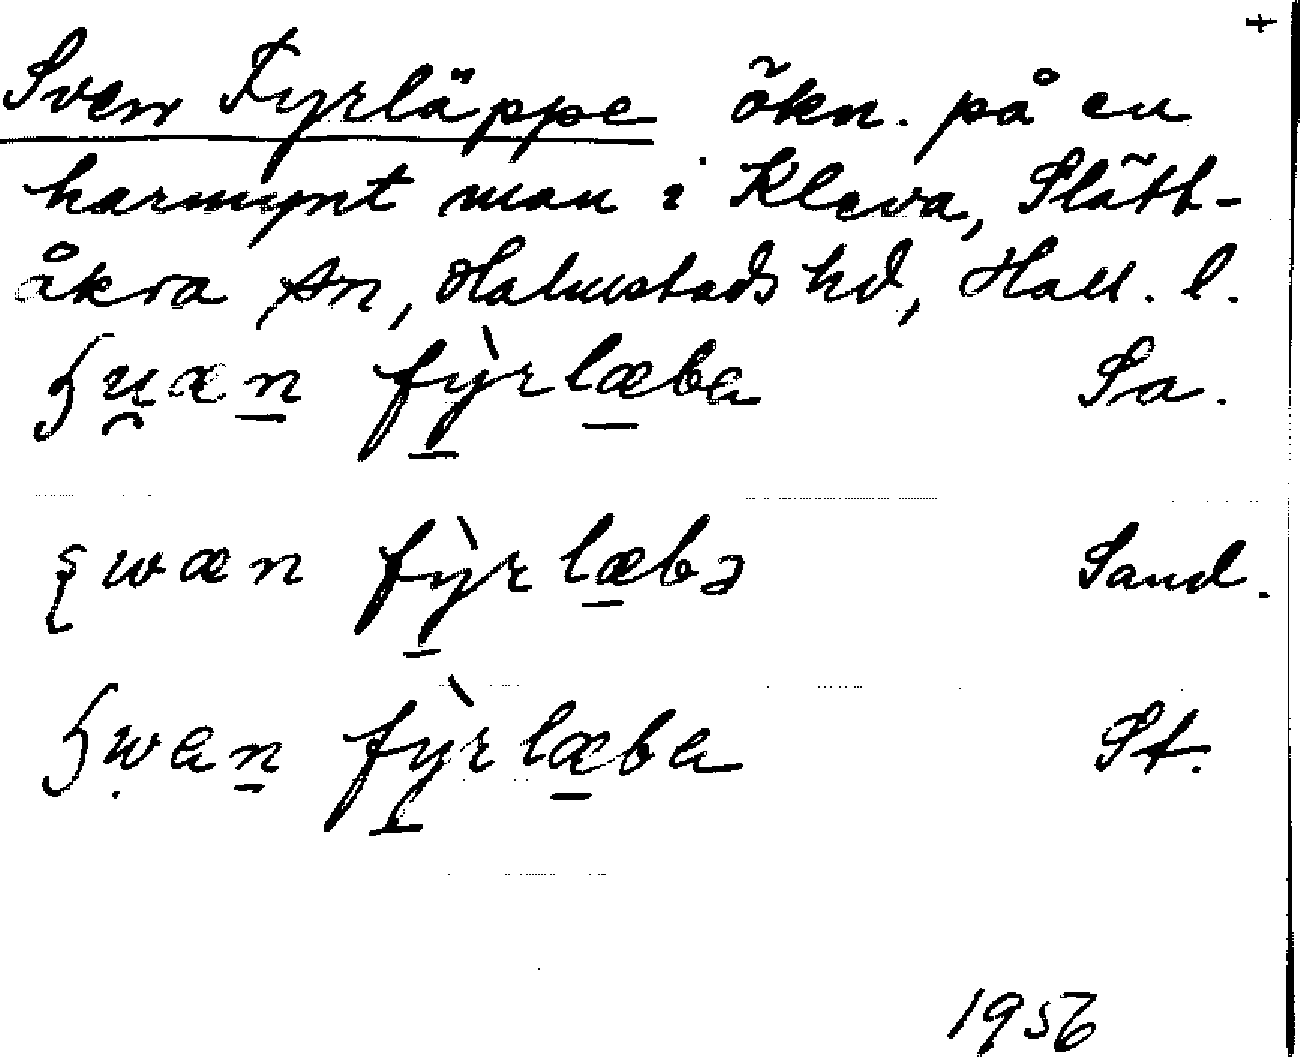 +
Sven Fyrläppe ökn. på en
harmynt man i Kleva, Slätt-
åkra sn, Halmstads hd, Hall. l.
ʂu̯æn fỳrlæba Sa.
ʂwæn fỳrlæbə Sand.
ʂwan fỳrlæba St.
1956